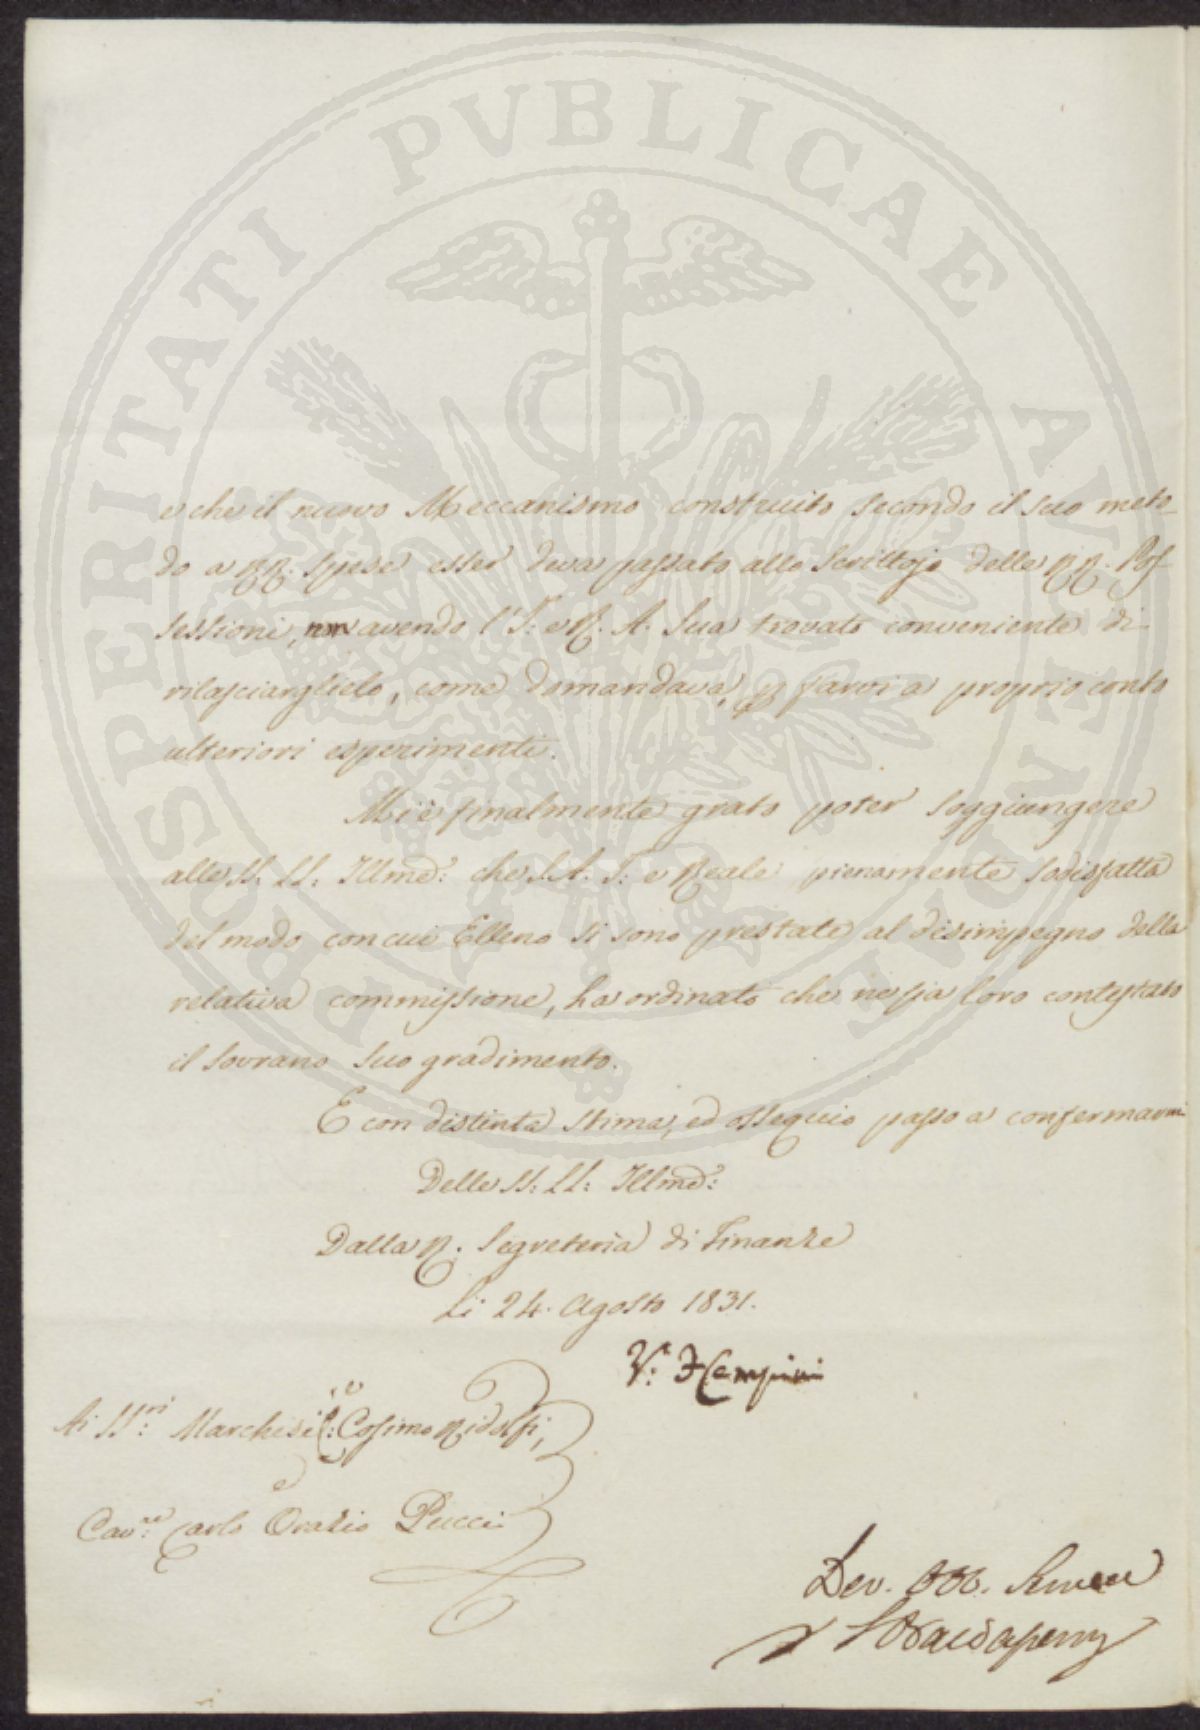 PROSPERITATI PVBLICAE AVGENDAE
e che il nuovo Meccanismo construito secondo il suo meto-
do a RR. Spese esser deva passato allo Scrittojo delle RR. Pos-
sessioni, non avendo l'I: e R. A. Sua trovato conveniente di
rilasciarglielo, come domandava, p farvi a proprio conto
ulteriori esperimenti.
Mi è finalmente grato poter soggiungere
alle SS. LL: Illme: che S.A. I: e Reale pienamente sodisfatta
del modo con cui Elleno si sono prestate al disimpegno della
relativa commissione, ha ordinato che ne sia loro contestato
il Sovrano suo gradimento.
E con distinta stima, ed ossequio passo a confermarmi
Delle SS: LL: Illme:
Dalla R. Segreteria di Finanze
Li 24. Agosto 1831.
V: F Cempini
Ai SS:ri Marchese Cosimo Ridolfi,
e
Cav:re Carlo Orazio Pucci
Dev. Obb. Serven